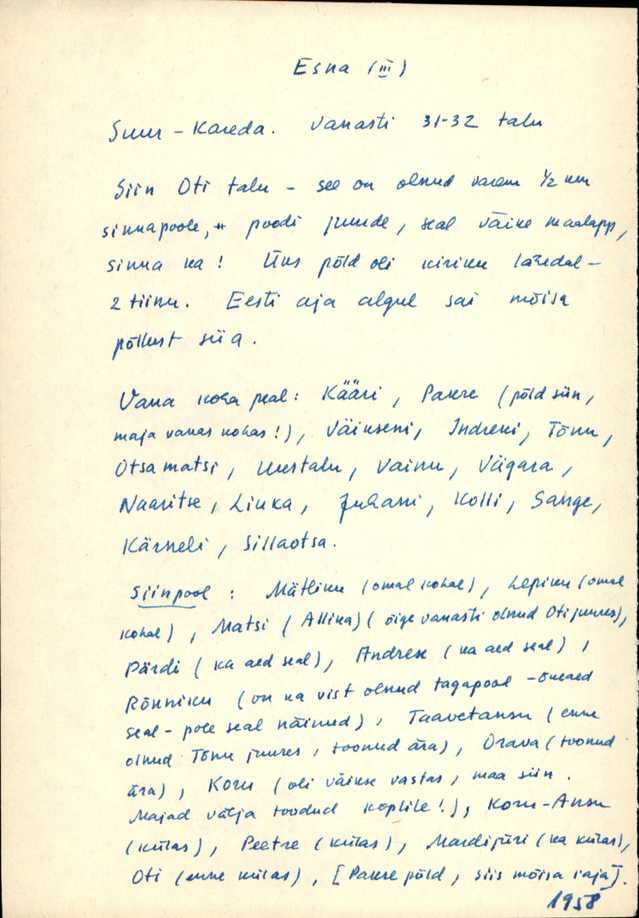 Esna (III)
Suur-Kareda. Vanasti 31-32 talu
Siin Oti talu - see on olnud varem 1/2 km
sinnapoole, poodi juurde, seal väike maalapp,
sinna ka! Üks põld oli kiriku läredal -
2 tiinu. Eesti aja algul sai mõisa
põllust siia.
Vana koha peal: Kääri, Parre (põld siin,
maja vanas kohas!), Väikseni, Indreki, Tõnu,
Otsamatsi, Uustalu, Vainu, Viigara,
Naaritse, Linka, Juhani, Kolli, Sange,
Kärneli, Sillaotsa.
Siinpool: Mätliku (omal kohal), Lepiku (omal
kohal), Matsi (Allika) (õige vanasti olnud Oti juures),
Pärdi (ka aed seal), Andrese (ka aed seal),
Rõnniku (on ka vist olnud tagapool - õueaed
seal - pole seal näinud), Taavetansu (enne
olnud Tõnu juures, toonud ära), Orava (toonud
ära), Koru (oli väikse vastas, maa siin.
Majad välja toodud koplile!), Koru-Ansu
(külas), Peetre (külas), Mardijüri (ka külas),
Oti (enne külas), [Parre põld, siis mõisa raja].
1958